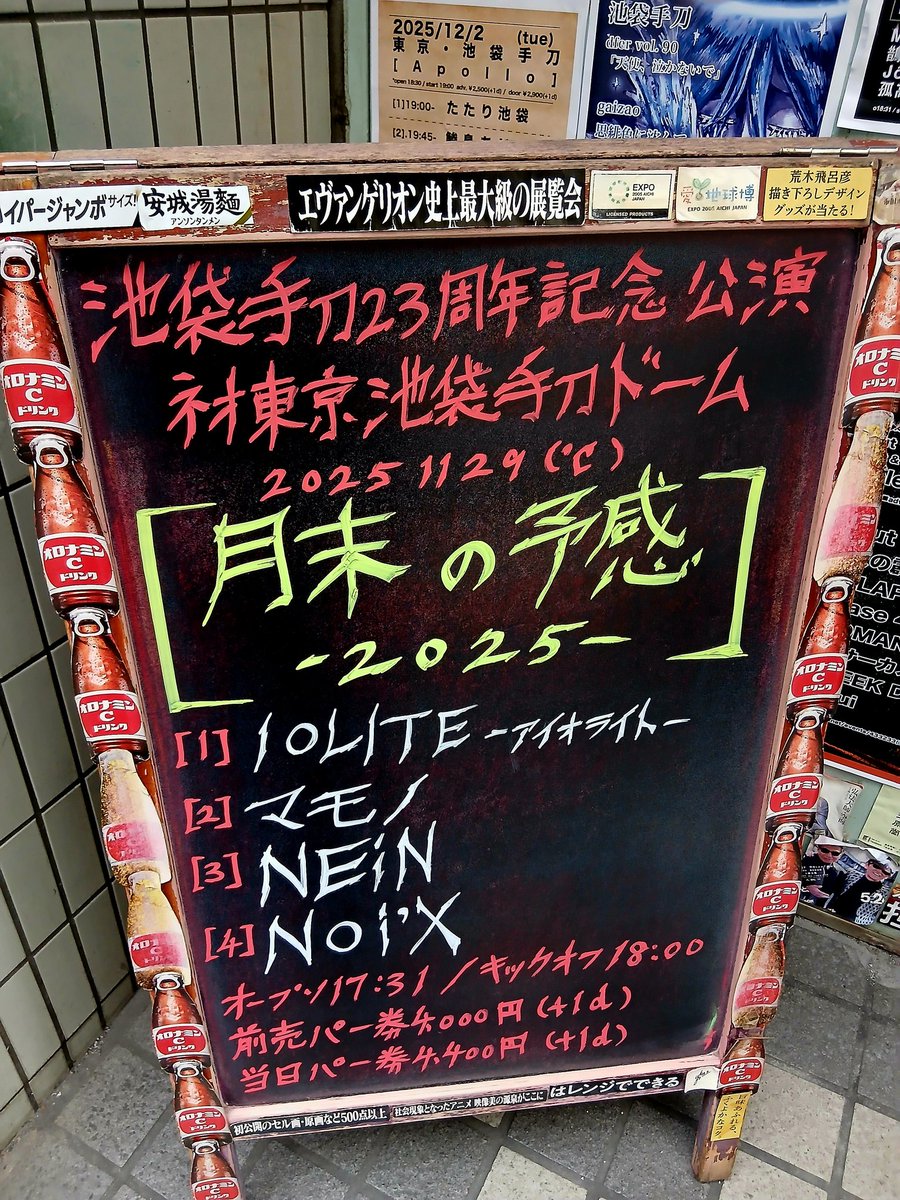 2025/12/2 (tue)
東京・池袋手刀
[Apollo]
*open 18:30 / start 19:00 adv. ¥2,500(+1d) / door ¥2,900(+1d)
[1]19:00- たたり池袋
[2].19:45-
池袋手刀
dfer vol. 90
「天使、泣かないで」
gaizao
イパージャンボサイズ!!
安城湯麺
アンソンタンメン
エヴァンゲリオン史上最大級の展覧会
EXPO
2005 AICHI
JAPAN
LICENSED PRODUCTS
愛・地球博
EXPO 2005 AICHI JAPAN
荒木飛呂彦
描き下ろしデザイン
グッズが当たる!
池袋手刀23周年記念公演
ネオ東京池袋手刀ドーム
2025 11 29 (℃)
[月末の予感
-2025-]
[1] IOLITE -アイオライト-
[2] マモノ
[3] NEiN
[4] Noi'X
オープン17:31 / キックオフ18:00
前売パー券4.000円(+1d)
当日パー券4.400円(+1d)
オロナミン
C
ドリンク
初公開のセル画・原画など500点以上
社会現象となったアニメ 映像美の源泉がここに
はレンジでできる
旨味あふれる、
ふくよかなコク。